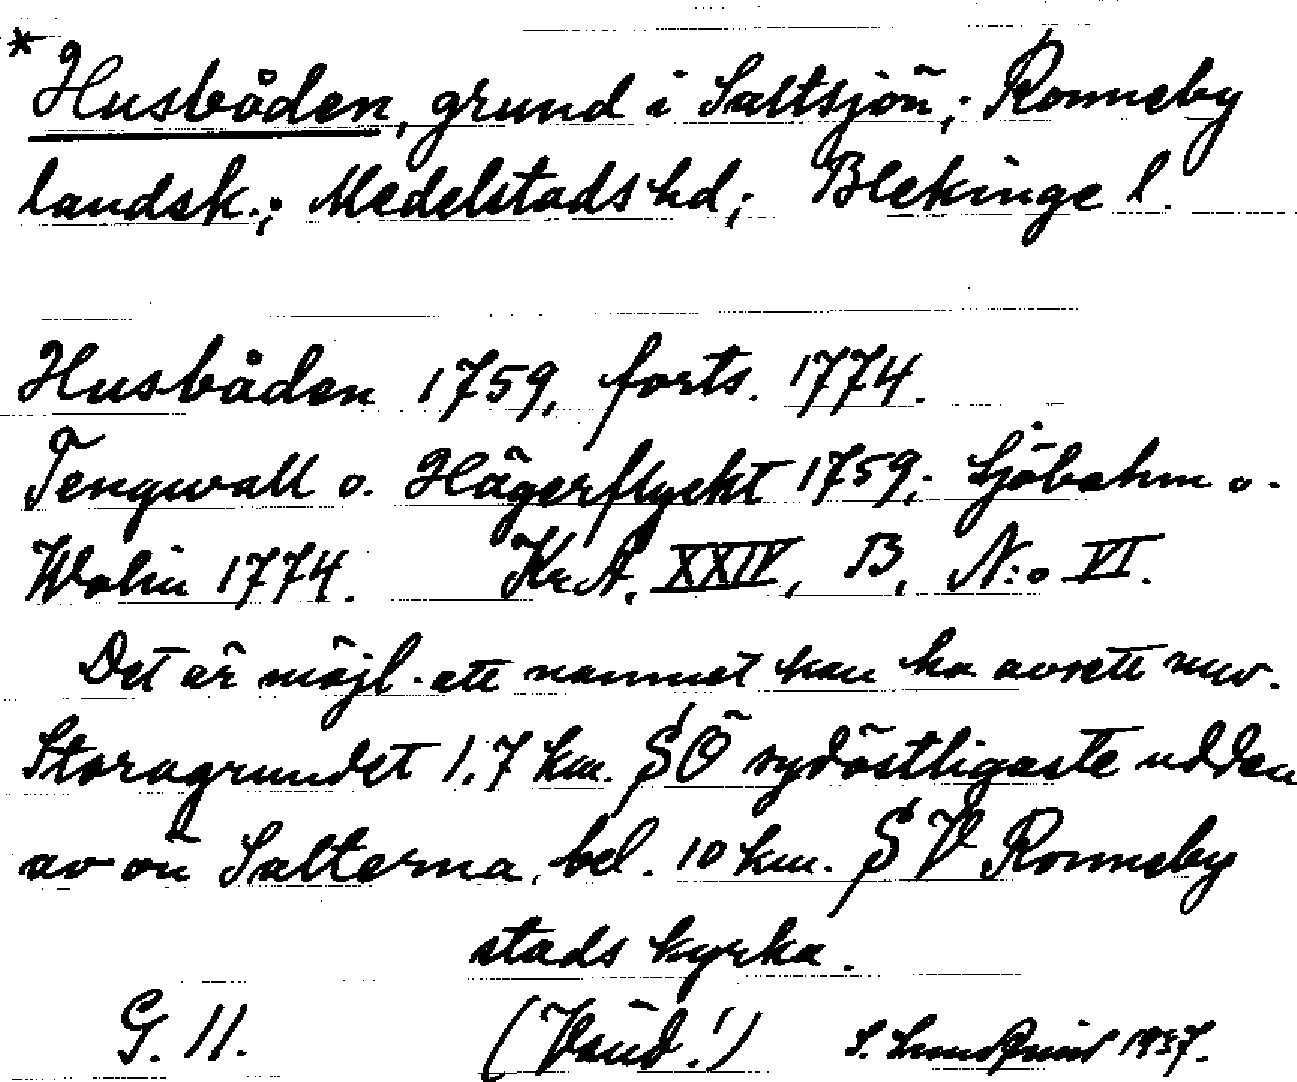 * Husbåden, grund i Saltsjön; Ronneby
landsk.; Medelstads hd; Blekinge l.
Husbåden 1759, forts. 1774.
Tengwall o. Hägerflyckt 1759; Sjöbohm o.
Wolin 1774. Kr.A. XXIV, B, N:o VI.
Det är möjl. att namnet kan ha avsett nuv.
Storagrundet 1.7 km. SÖ sydöstligaste udden
av ön Salterna, bel. 10 km. SV Ronneby
stads kyrka.
G. 11. (Vänd!) S. 1937.